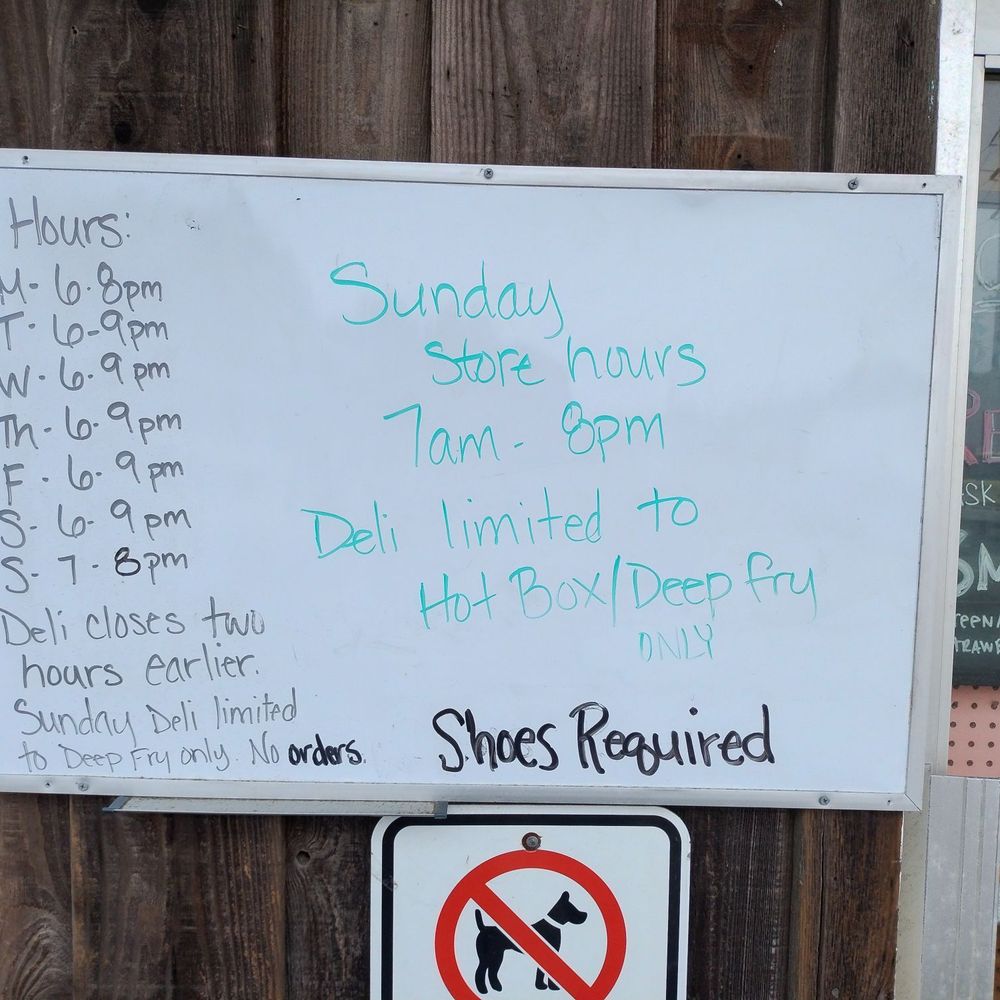 Hours:
M- 6-8pm
T- 6-9pm
W- 6-9pm
Th- 6-9pm
F- 6-9pm
S- 6-9pm
S- 7-8pm
Deli closes two
hours earlier.
Sunday Deli limited
to Deep Fry only. No orders.
Sunday
Store hours
7am- 8pm
Deli limited to
Hot Box/Deep fry
ONLY
Shoes Required